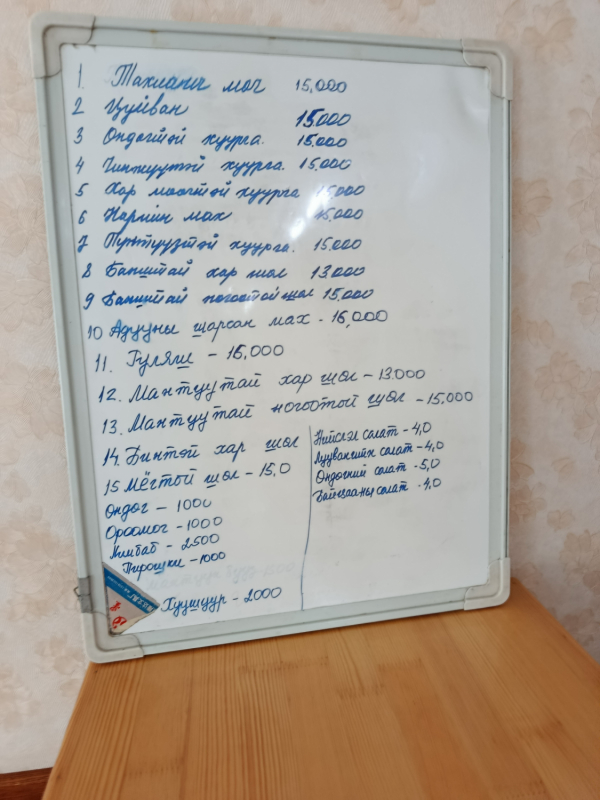 1. Тахианы мах 15,000
2 Цуйван 15.000
3 Өндөгтэй хуурга. 15.000
4 Чинжүүтэй хуурга. 15,000
5 Хар мөөгтэй хуурга 15,000
6 Нарийн мах 15,000
7 Пүнтүүзтэй хуурга. 15.000
8 Банштай хар шөл 13.000
9 Банштай ногоотой шөл 15,000
10 Адууны шарсан мах - 16,000
11. Гуляш - 16,000
12. Мантуутай хар шөл - 13.000
13. Мантуутай ногоотой шөл - 15.000
14. Бинтэй хар шөл
15 Мөгтэй шөл - 15,0
Өндөг - 1000
Ороомог - 1000
Кимбаб - 2500
Пирошки - 1000
Хуушуур - 2000
Нийслэл салат - 4,0
Луувангийн салат - 4,0
Өндөгний салат - 5,0
Байцааны салат - 4,0